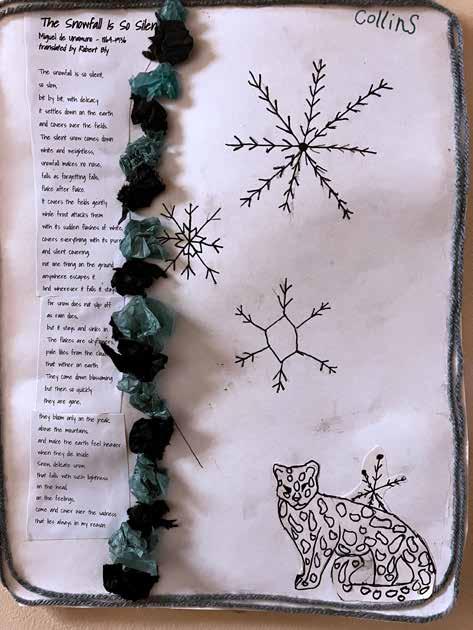 Collins
The Snowfall Is So Silent
Miguel de Unamuno - 1864-1936
translated by Robert Bly
The snowfall is so silent,
so slow,
bit by bit, with delicacy
it settles down on the earth
and covers over the fields.
The silent snow comes down
white and weightless;
snowfall makes no noise,
falls as forgetting falls,
flake after flake.
It covers the fields gently
while frost attacks them
with its sudden flashes of white;
covers everything with its pure
and silent covering;
not one thing on the ground
anywhere escapes it.
And wherever it falls it stays,
for snow does not slip off
as rain does,
but it stays and sinks in.
The flakes are skyflowers,
pale lilies from the clouds,
that wither on earth.
They come down blossoming
but then so quickly
they are gone;
they bloom only on the peak,
above the mountains,
and make the earth feel heavier
when they die inside.
Snow, delicate snow,
that falls with such lightness
on the head,
on the feelings,
come and cover over the sadness
that lies always in my reason.